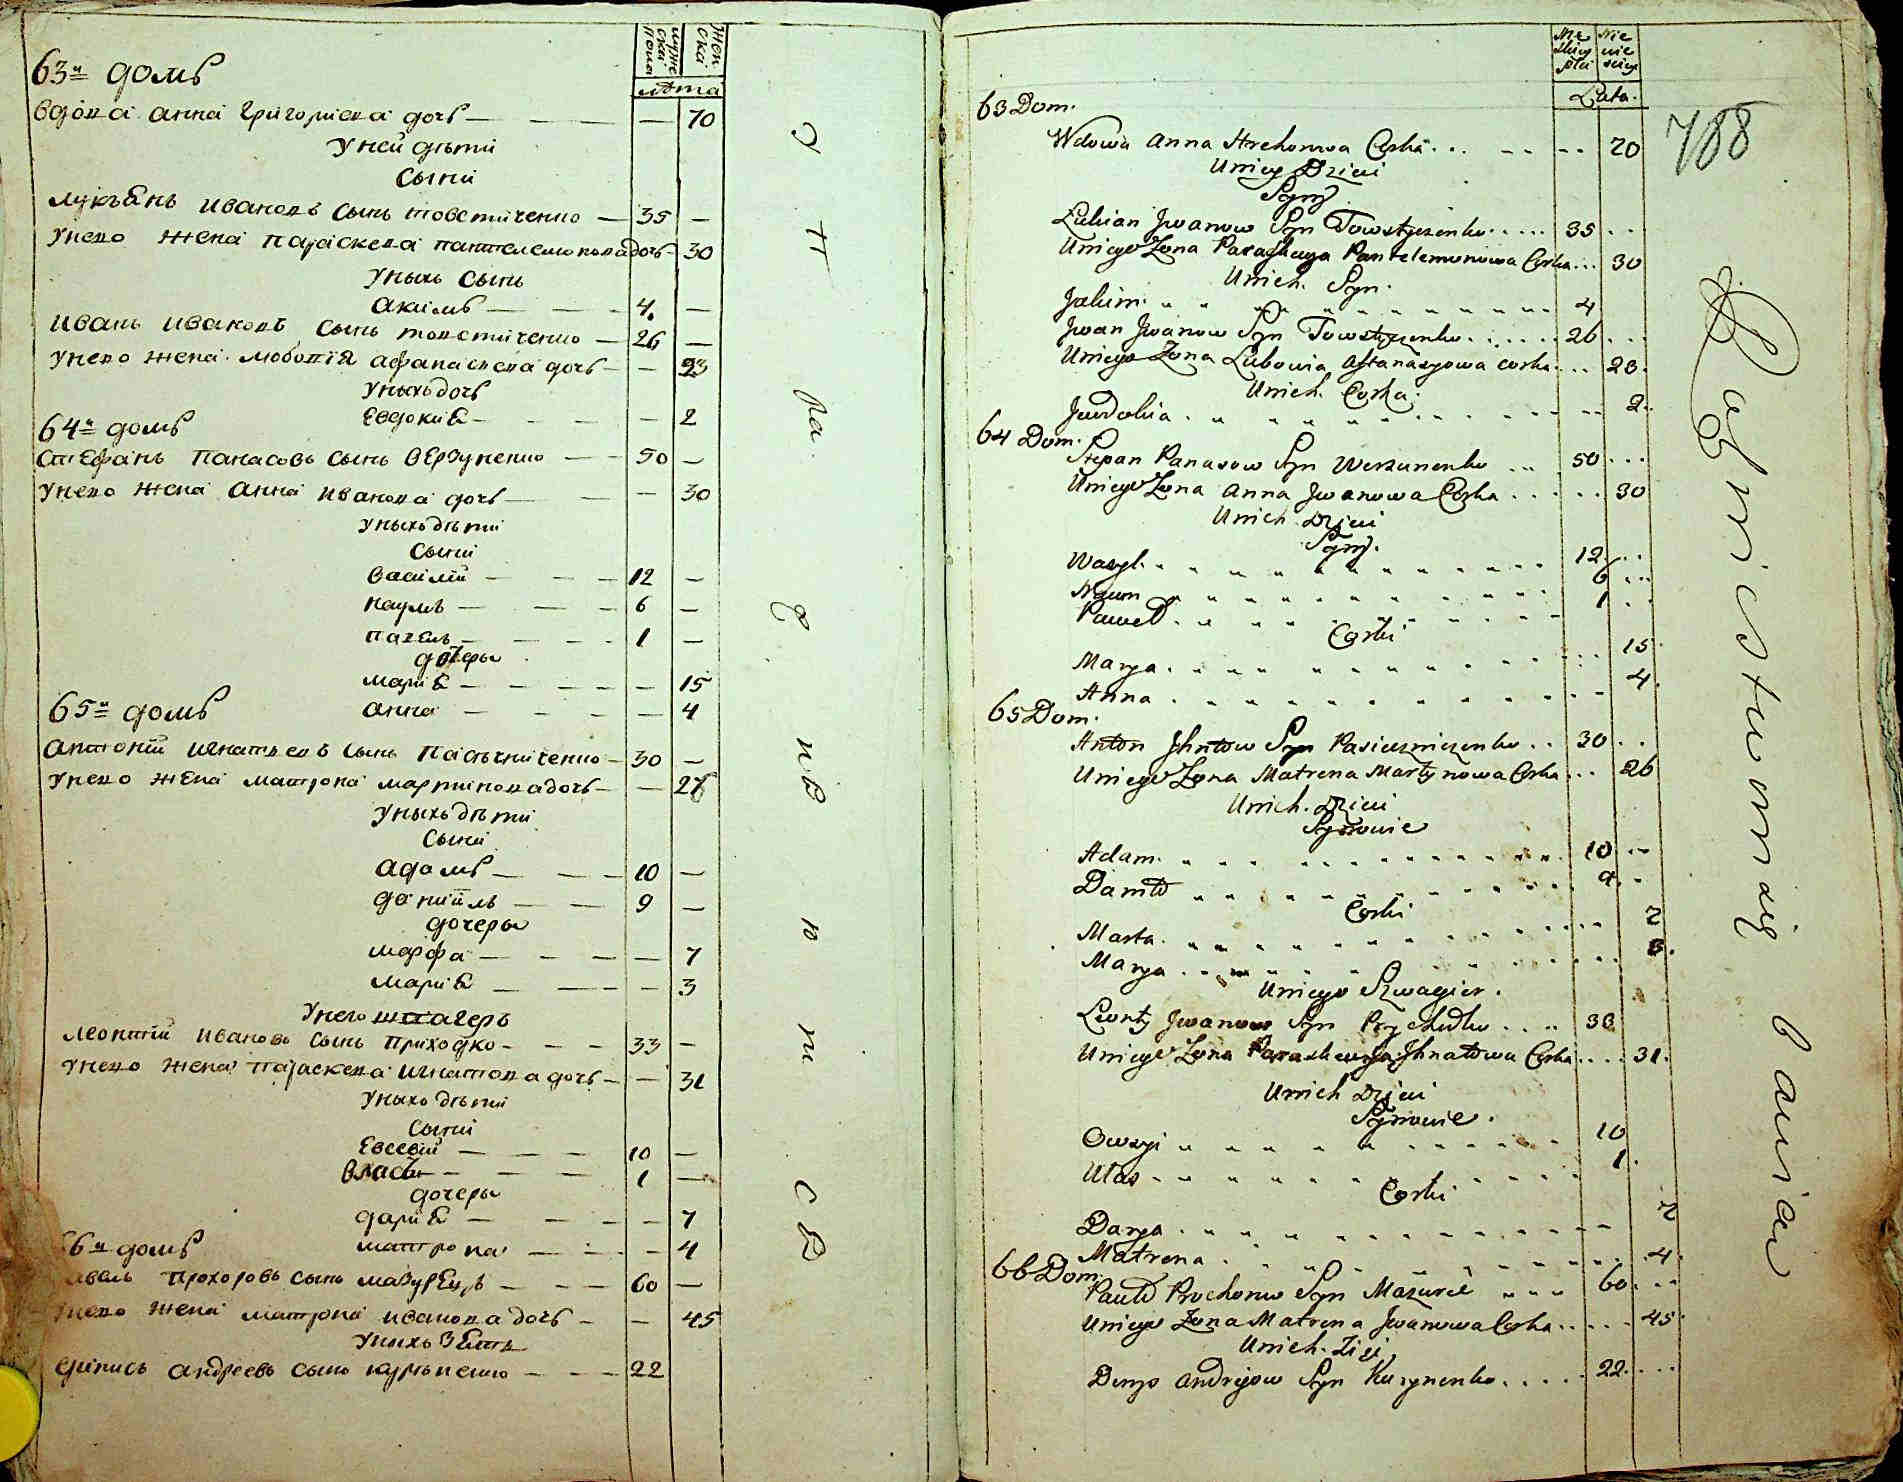 мужескаго пола
женска
лѣта
63й домъ
вдова анна григориева дочь — — 70
У ней дѣти
сыны
лукъянъ ивановъ сынъ товстиченко — 35 —
У него жена параскева пантелемонова дочь — 30
У нихъ сынъ
акимъ — — 4 —
иванъ ивановъ сынъ товстиченко — 26 —
У него жена любовия афанасиева дочь — — 23
У нихъ дочь
евдокия — — 2
64й домъ
стефанъ панасовъ сынъ верзуненко — 50 —
У него жена анна иванова дочь — — 30
У нихъ дѣти
сыны
василий — — 12 —
наумъ — — 6 —
павелъ — — 1 —
дочеры
мария — — 15
анна — — 4
65й домъ
антоний игнатиевъ сынъ пасѣчниченко — 30 —
У него жена матрона мартинова дочь — — 26
У нихъ дѣти
сыны
адамъ — — 10 —
даниилъ — — 9 —
дочеры
марфа — — 7
мария — — 3
У него швагеръ
леонтий ивановъ сынъ приходко — — 33 —
У него жена параскева игнатова дочь — — 31
У нихъ дѣти
сыны
евсевий — — 10 —
власъ — — 1 —
дочеры
дария — — 7
матрона — — 4
66й домъ
павелъ прохоровъ сынъ мазурецъ — — 60 —
У него жена матрона иванова дочь — — 45
У нихъ зять
денисъ андреевъ сынъ курыненко — — 22
Męskiey płci
Nie wie sciey
Lata.
788
63 Dom.
Wdowa Anna Hrehorowa Corka . . . 70
U niey Dzieci
Syny
Lukian Jwanow Syn Towstyczenko . . . . . 35 . .
U niego Zona Paraskewya Pantelemonowa Corka . . . 30
U nich. Syn.
Jakim. 4
Jwan Jwanow Syn Towstyczenko . . . . . . 26 . . .
U niego Zona Lubowia Aftanazyowa corka . . . 23.
U nich. Corka.
Jewdokia . 2.
64 Dom.
Stepan Panasow Syn Werzunenko . . . 50 . . .
U niego Zona Anna Jwanowa Corka . . . . . 30
U nich. Dzieci
Syny.
Wasyl. 12 . .
Naum 6 . . .
Paweł. 1 . .
Corki
Marya. 15.
Anna . 4.
65 Dom.
Anton Jhntow Syn Pasieczniczenko . . 30 . .
U niego Zona Matrena Martynowa Corka . . . 26
U nich. Dzieci
Synowie
Adam. 10 . .
Daniło 9. .
Corki
Marta. 7
Marya . 3.
U niego Szwagier.
Leonty Jwanow Syn Prychodko . . . 33
U niego Zona Paraskewya Jhnatowa Corka . . . . 31.
U nich Dzieci
Synowie.
Owsyi 10
Ułas 1.
Corki
Darya . 7
Matrena . 4.
66 Dom.
Pawło Prochorow Syn Mazurec 60. . .
U niego Zona Matrona Jwanowa Corka . . . . . 45.
U nich. Zięć
Denys Andrijow Syn Kurynenko . . . . . 22. . . .